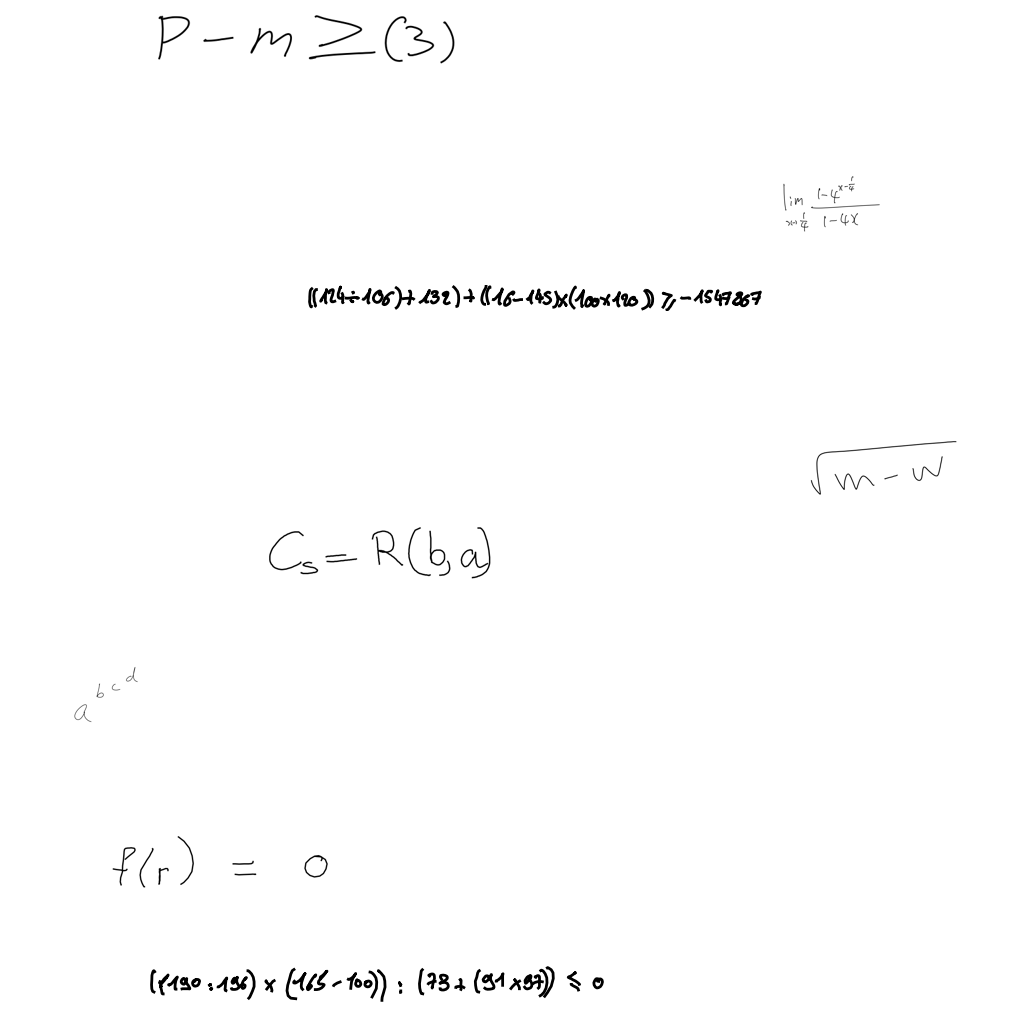 P - m ≥ (3)
lim x→1/4 (1-4^(x-1/4))/(1-4x)
((124÷106)+132)+((16-145)×(100×120)) ⩾ -1547867
√(m-w)
C_s = R(b,a)
a^(b^(c^d))
f(r) = 0
((190:196)×(165-100)):(73+(91×97)) ⩽ 0